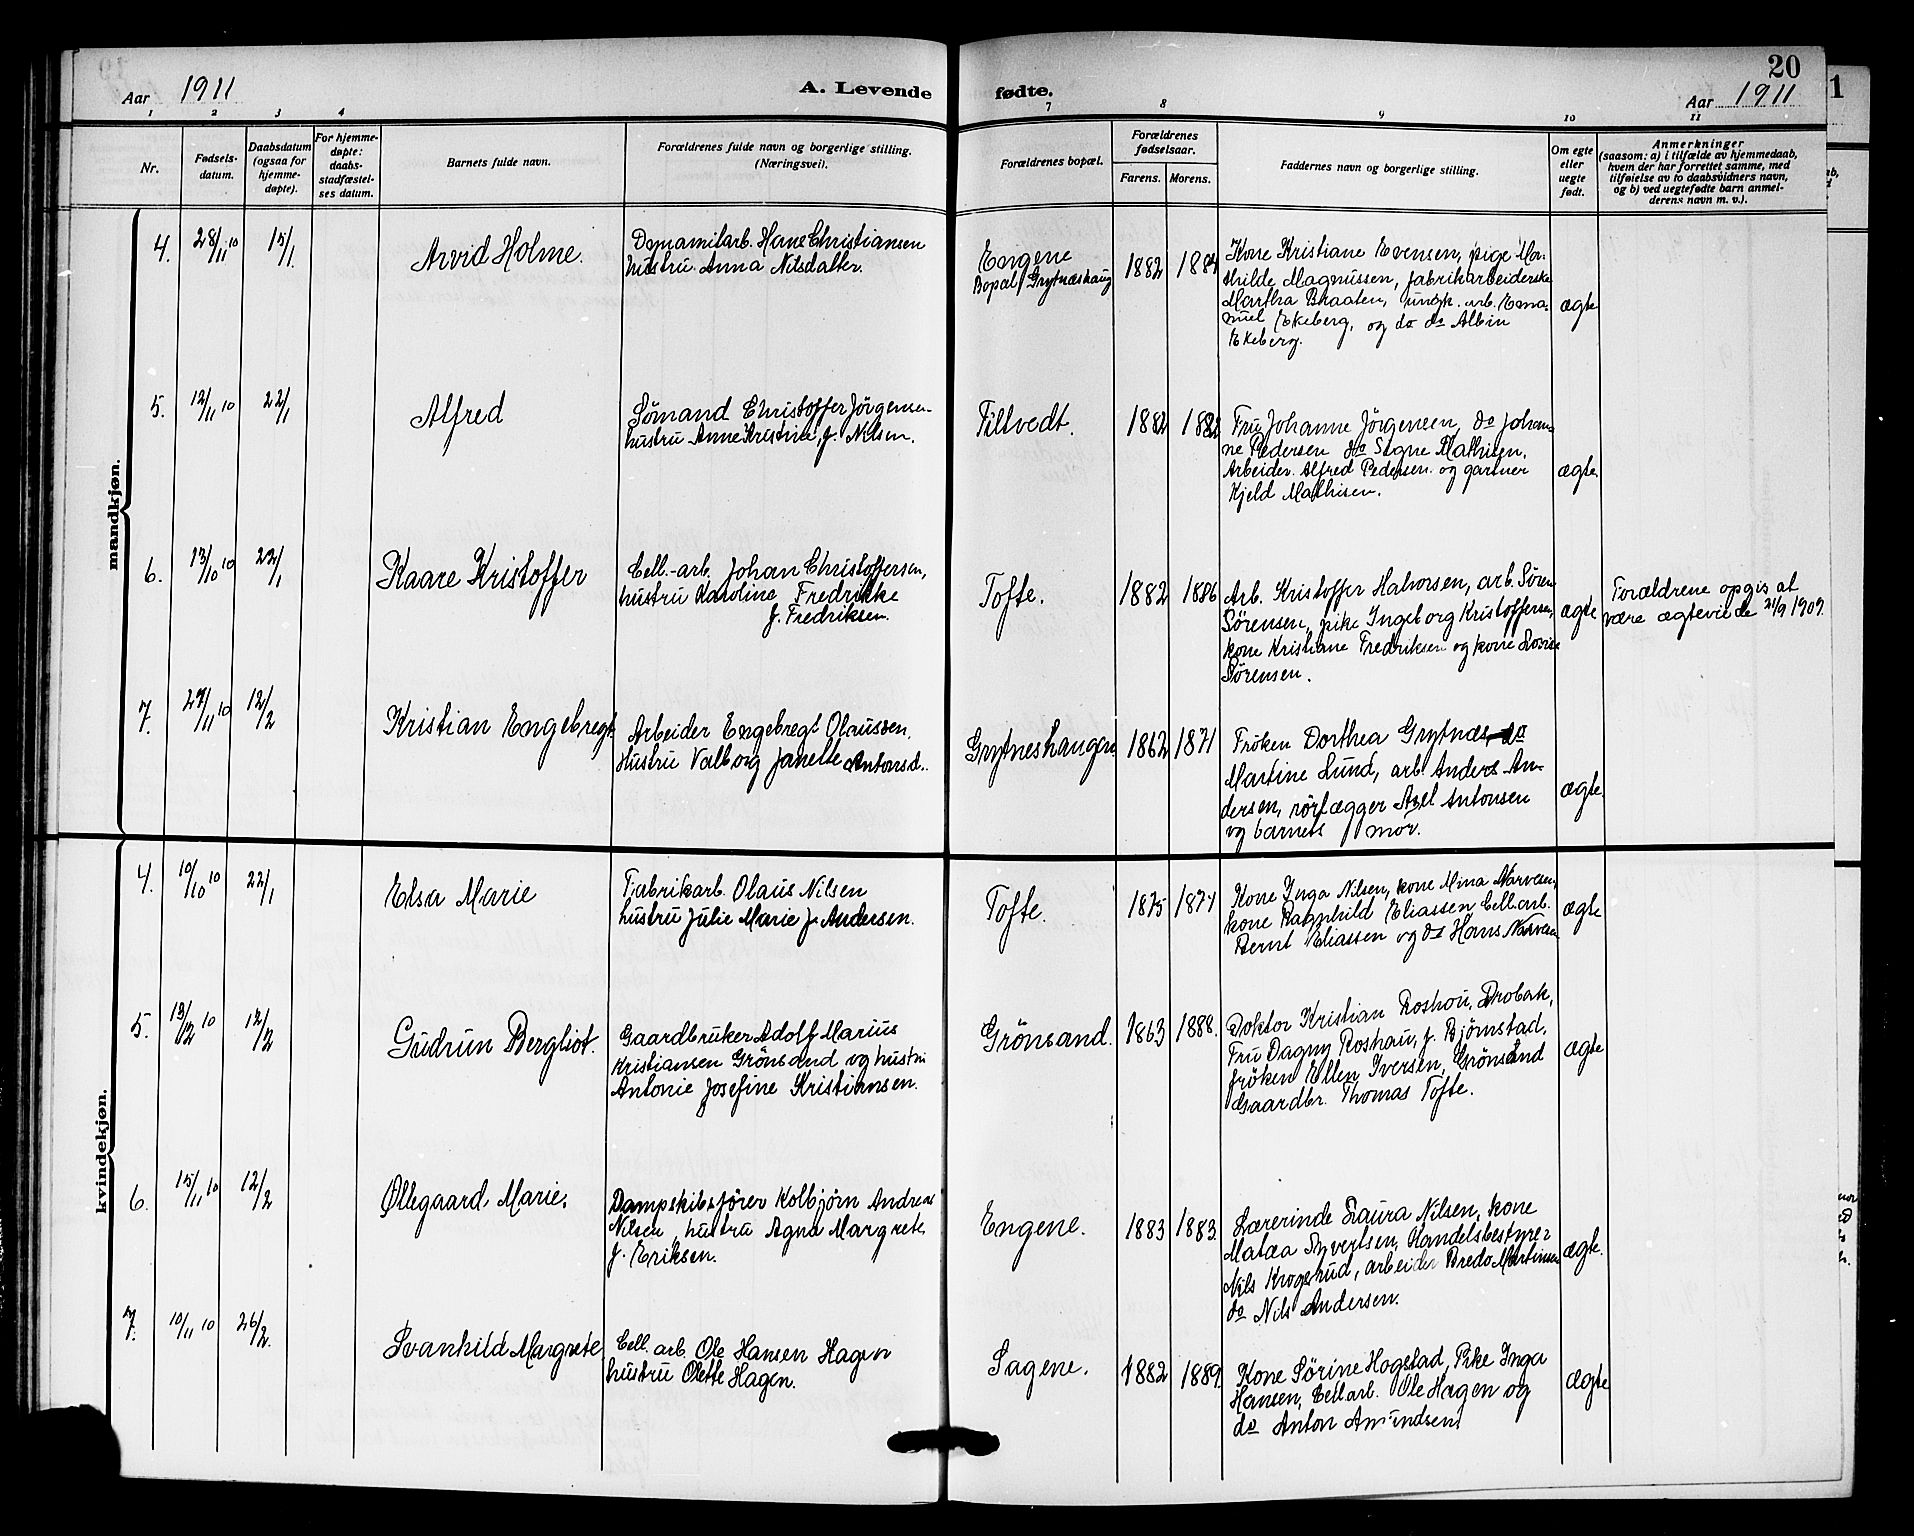 Aar 1911
A. Levende fødte.
20
Aar 1911
1 2 3 4 7 8 9 10 11
Nr.
Fødsels-
datum.
Daabsdatum
(ogsaa for
hjemme-
døpte).
For hjemme-
døpte:
daabs-
stadfæstel-
ses datum.
Barnets fulde navn.
Forældrenes fulde navn og borgerlige stilling.
(Næringsvei).
Forældrenes bopæl.
Forældrenes
fødselsaar.
Farens. Morens.
Faddernes navn og borgerlige stilling.
Om egte
eller
uegte
født.
Anmerkninger
(saasom: a) i tilfælde av hjemmedaab,
hvem der har forrettet samme, med
tilføielse av to daabsvidners navn,
og b) ved uegtefødte barn anmel-
derens navn m. v.).
mandkjøn.
4. 28/11 10 15/1 Arvid Holme.
Dynamitarb. Hans Christiansen
hustru Anna Nilsdatter.
Engene
Bopæl Grytneshaug
1882
Kone Kristiane Evensen, pige Mat-
hilde Magnussen, fabrikarbeiderske
Martha Braaten, ungk. arb. Ema-
nuel Ekeberg, og do do Albin
Ekeberg.
ægte
5. 12/11 10 22/1 Alfred
Sömand Christoffer Jörgensen
hustru Anne Kristine f. Nilsen.
Filtvedt.
1882 1882
Fru Johanne Jörgensen, do Johan-
ne Pedersen do Signe Mathisen,
Arbeider Alfred Pedersen og gartner
Kjeld Mathisen.
ægte.
6. 13/10 10 22/1 Kaare Kristoffer
Cell.-arb. Johan Christoffersen,
hustru Karoline Fredrikke
f. Fredriksen.
Tofte.
1882 1886
Arb. Kristoffer Halvorsen, arb. Sören
Sörensen, pike Ingeborg Kristoffersen,
kone Kristiane Fredriksen og kone Lovise
Sörensen.
ægte
Forældrene opgis at
være ægteviede 21/9 1909.
7. 27/11 10 12/2 Kristian Engebregt
Arbeider Engebregt Olaussen,
Hustru Valborg Janette Antonsd..
Grytneshaugen
1862 1871
Fröken Dorthea Grytnes, do
Martine Lund, arb. Anders An-
dersen, rörlægger Axel Antonsen
og barnets mor.
ægte.
kvindekjøn.
4. 10/10 10 22/1 Elsa Marie
Fabrikarb. Olaus Nilsen
hustru Julie Marie f. Andersen.
Tofte.
1875 1871
Kone Inga Nilsen, kone Mina Narvesen,
kone Ragnhild Eliassen, Cell.arb.
Bernt Eliassen og do Hans Narvesen
ægte
5. 13/12 10 12/2 Gudrun Bergliot.
Gaardbruker Adolf Marius
Kristiansen Grönsand og hustru
Antonie Josefine Kristiansen.
Grönsand.
1863 1888.
Doktor Kristian Roshau, Drobak,
Fru Dagny Roshau, f. Bjørnstad.
fröken Ellen Iversen, Grönsand
Gaardbr. Thomas Tofte.
ægte
6. 15/11 10 12/2 Øllegaard Marie.
Dampskibsförer Kolbjörn Andreas
Nilsen, hustru Agna Margrete
f. Eriksen.
Engene.
1883 1883.
Lærerinde Laura Nilsen, kone
Matea Syvertsen, Handelsbestyrer
Nils Krogsrud, arbeider Bredo Martinsen
do Nils Andersen.
ægte.
7. 10/11 10 26/2. Svanhild Margrete
Cell. arb. Ole Hansen Hagen
hustru Olette Hagen.
Sagene.
1882 1889.
Kone Sörine Hogstad, Pike Inga
Hansen, Cell.arb. Ole Hagen og
do Anton Amundsen.
ægte